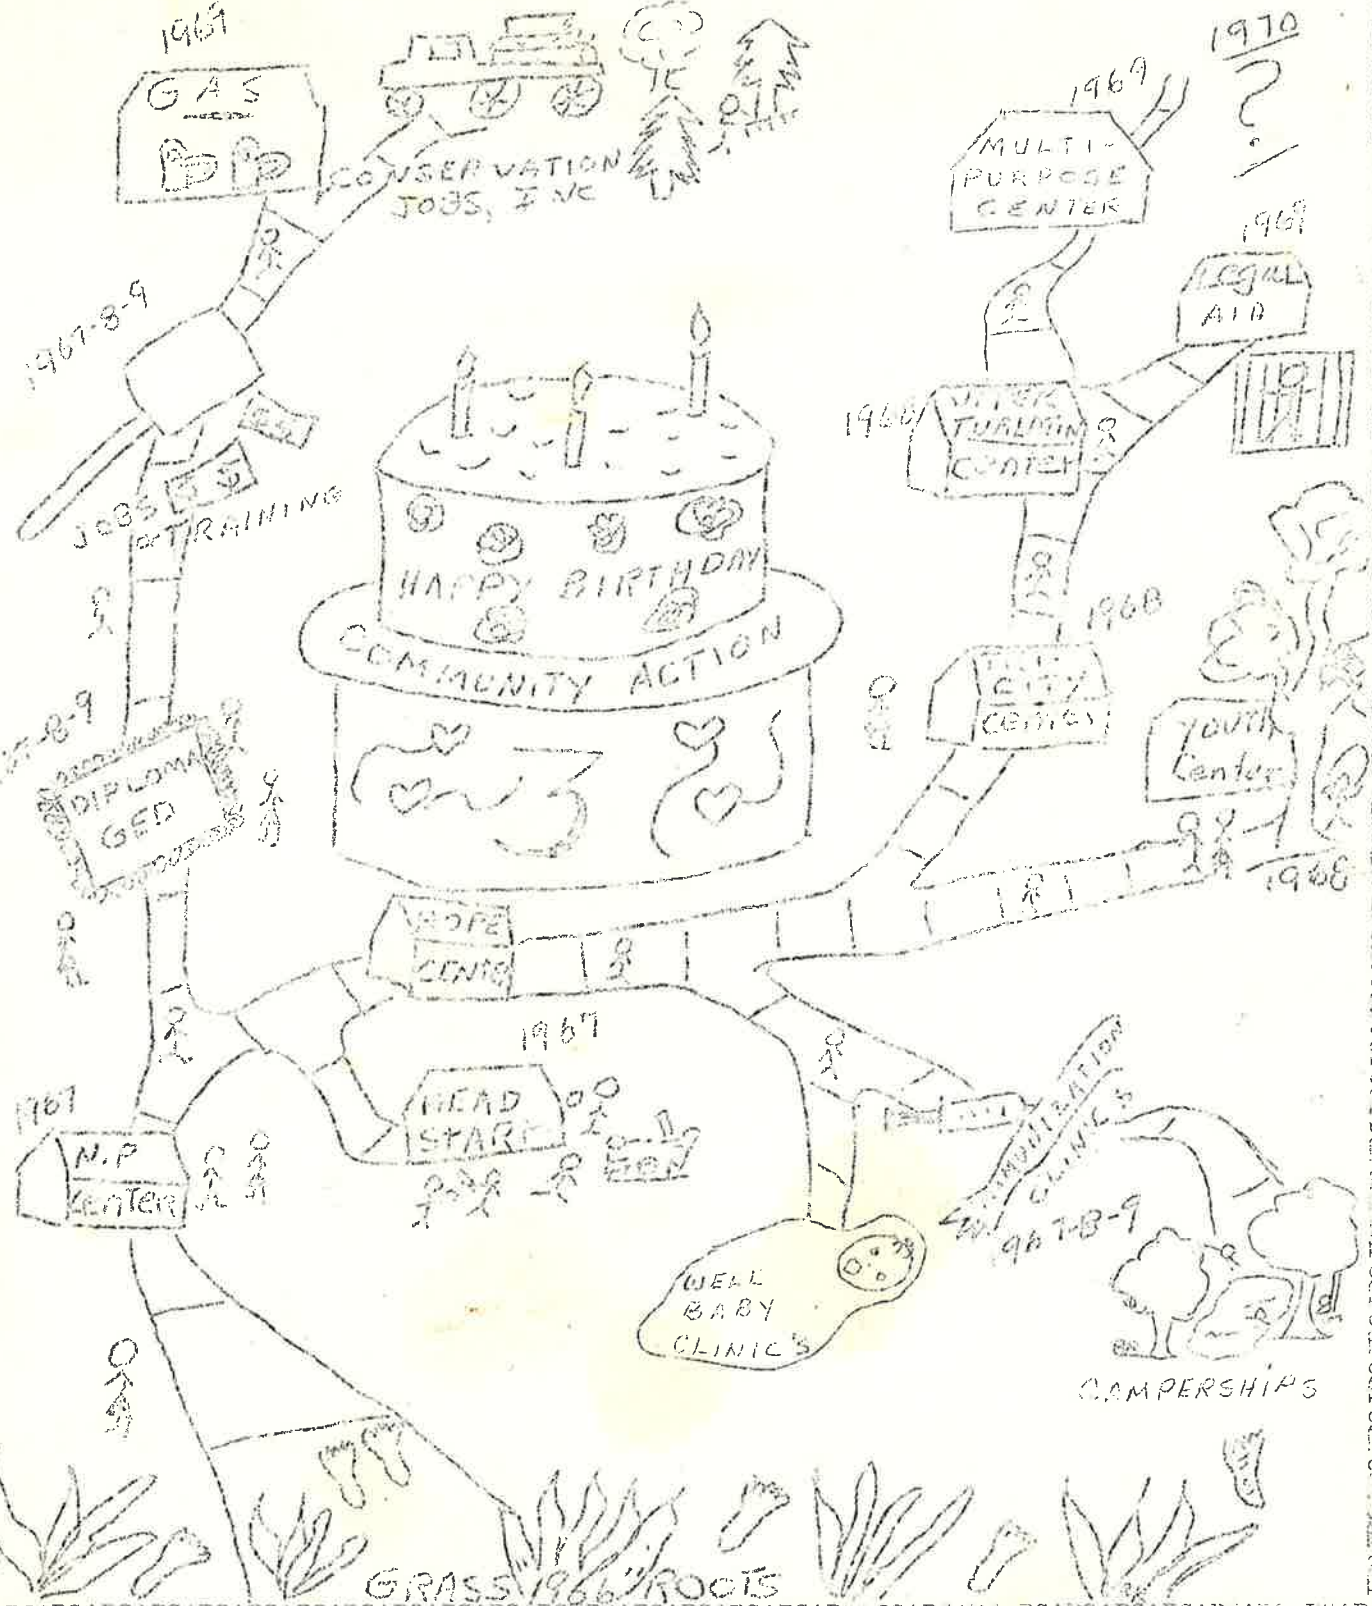 1969
GAS
CONSERVATION
JOBS, INC
1969
1970
?
MULTI-
PURPOSE
CENTER
1969
Legal
AID
1967-8-9
$ $
$ $
JOBS
or TRAINING
1968
UPPER
TUALATIN
CENTER
HAPPY BIRTHDAY
COMMUNITY ACTION
3
1968
CITY
CENTER
YOUTH
Center
1968
8-9
DIPLOMA
GED
HOPE
CENTER
1967
HEAD
START
1967
N.P
CENTER
IMMUNIZATION
CLINIC'S
1967-8-9
WELL
BABY
CLINIC'S
CAMPERSHIPS
GRASS "1966" ROOTS